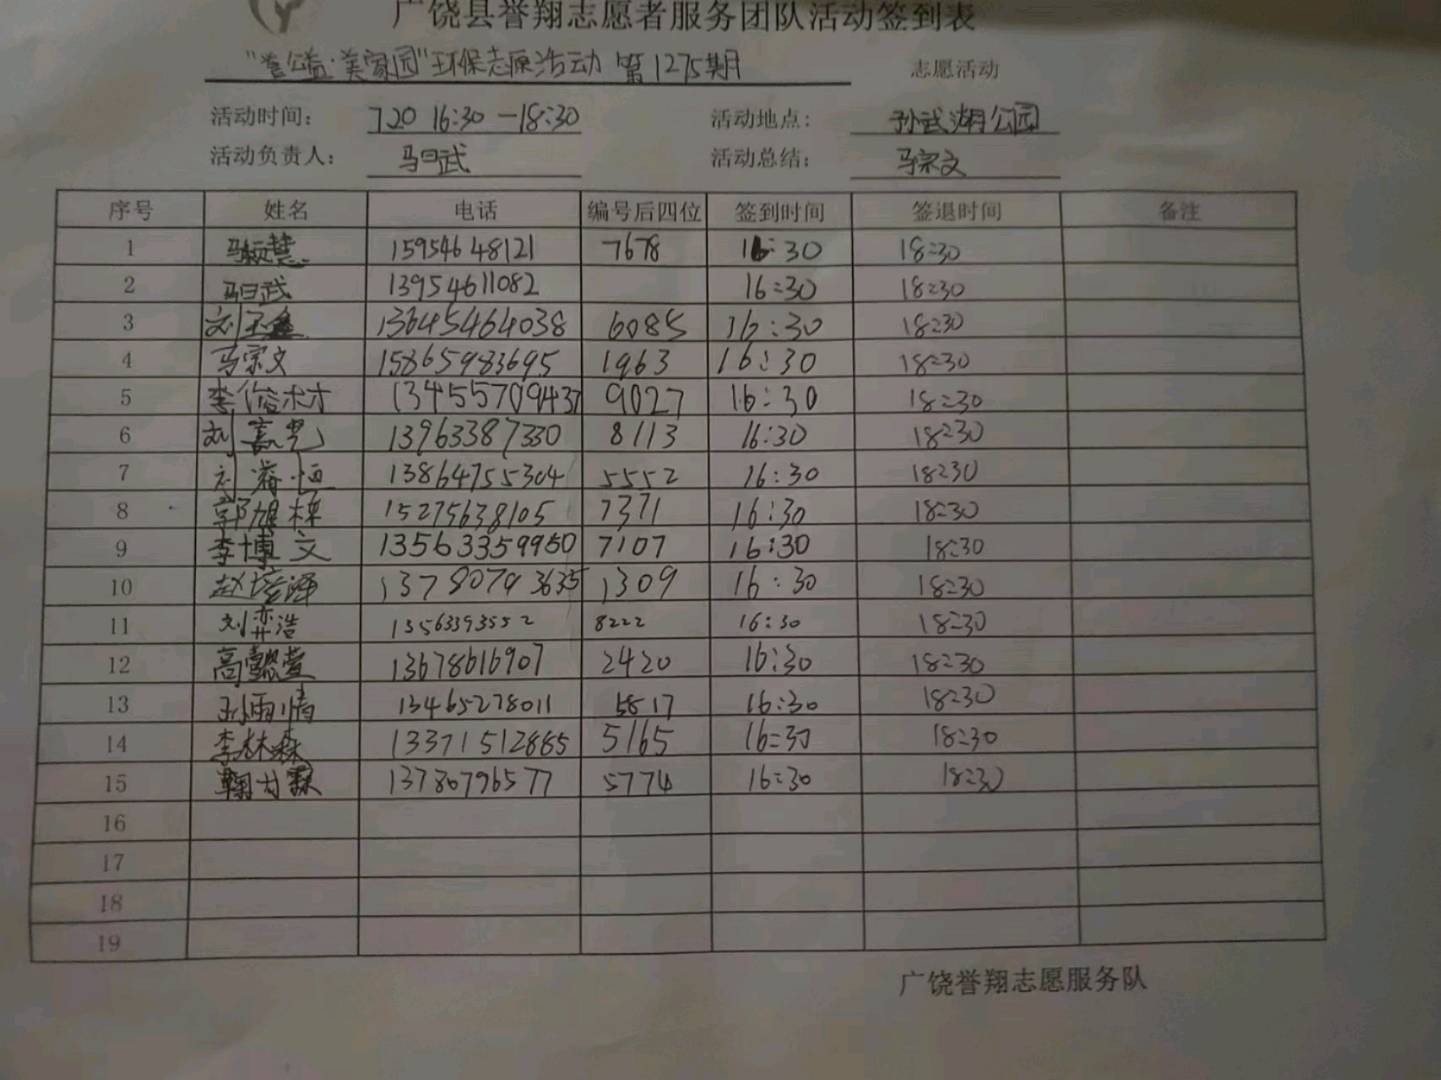 广饶县誉翔志愿者服务团队活动签到表
"誉公益·美家园"环保志愿活动 第1275期 志愿活动
活动时间： 7.20 16:30-18:30 活动地点： 孙武湖公园
活动负责人： 马曰武 活动总结： 马宗文
序号 姓名 电话 编号后四位 签到时间 签退时间 备注
1 马颖慧 15954648121 7678 16:30 18:30
2 马曰武 13954611082 16:30 18:30
3 刘玉鑫 13645464038 6085 16:30 18:30
4 马宗文 15865983695 1963 16:30 18:30
5 李俊材 13455709437 9027 16:30 18:30
6 刘嘉光 13963387330 8113 16:30 18:30
7 刘睿恒 13864755304 5552 16:30 18:30
8 郭旭栋 15275638105 7371 16:30 18:30
9 李博文 13563359950 7107 16:30 18:30
10 赵培泽 13780793635 1309 16:30 18:30
11 刘弈浩 13563393552 8222 16:30 18:30
12 高懿萱 13678616907 2420 16:30 18:30
13 孙雨晴 13465278011 5817 16:30 18:30
14 李林森 13371512885 5165 16:30 18:30
15 13780796577 5774 16:30 18:30
16
17
18
19
广饶誉翔志愿服务队